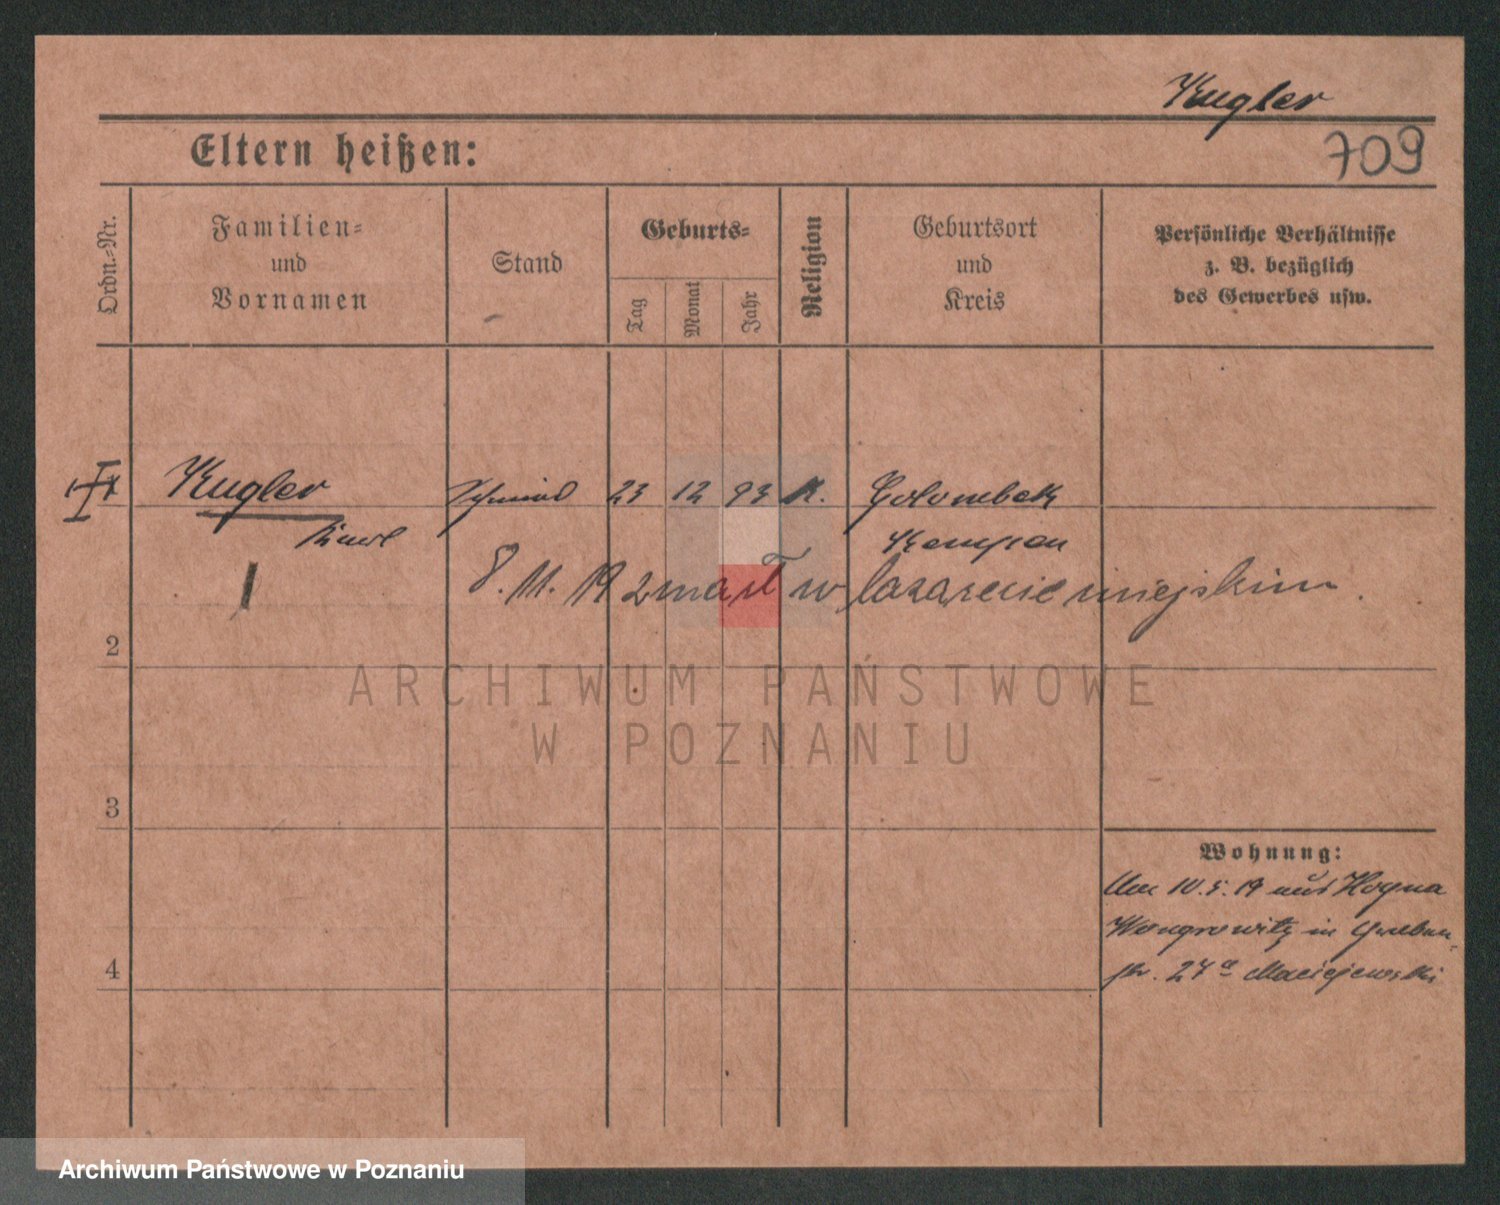 Kugler
709
Eltern heißen:
Ordn.-Nr.
Familien- und Vornamen
Stand
Geburts-
Tag
Monat
Jahr
Religion
Geburtsort und Kreis
Persönliche Verhältnisse
z. B. bezüglich
des Gewerbes usw.
Kugler
Schmied 23 12 93 K.
Kempen
8. 11. 19 zmarł w lazarecie miejskim.
2
3
4
Wohnung:
Am 10.5.19 aus
Wongrowitz in
str. 27a Maciejewski
ARCHIWUM PAŃSTWOWE
W POZNANIU
Archiwum Państwowe w Poznaniu